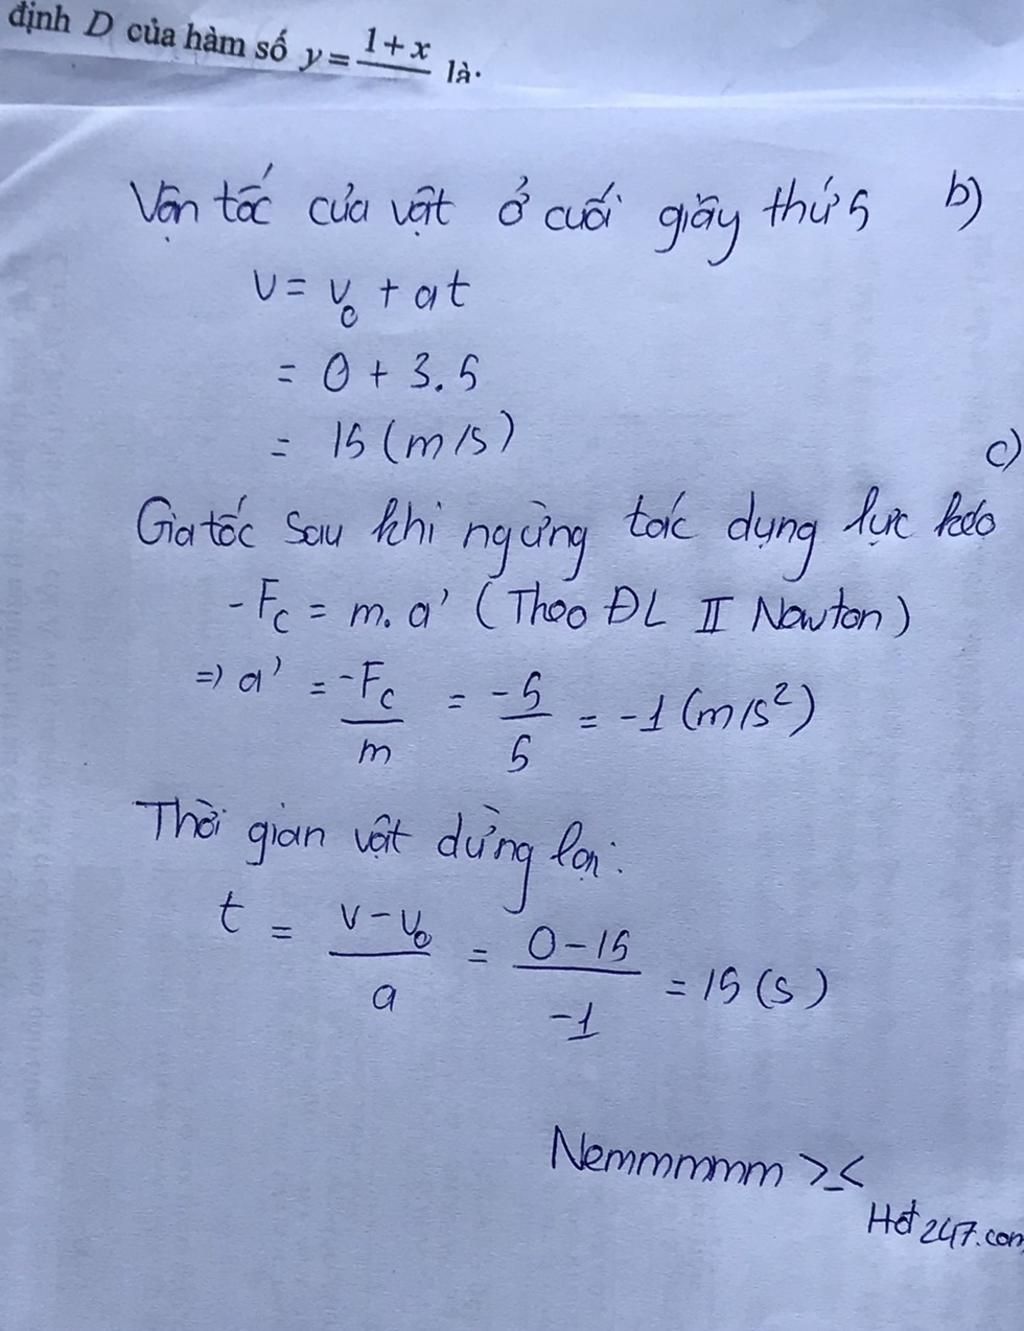 định D của hàm số y = 1+x là.
Vận tốc của vật ở cuối giây thứ 5 b)
v = v₀ + at
= 0 + 3.5
= 15 (m/s)
c)
Gia tốc sau khi ngừng tác dụng lực kéo
-Fc = m.a' (Theo ĐL II Newton)
=> a' = -Fc/m = -5/5 = -1 (m/s²)
Thời gian vật dừng lại:
t = v-v₀/a = 0-15/-1 = 15 (s)
Nemmmmm >_<
Hđ247.com